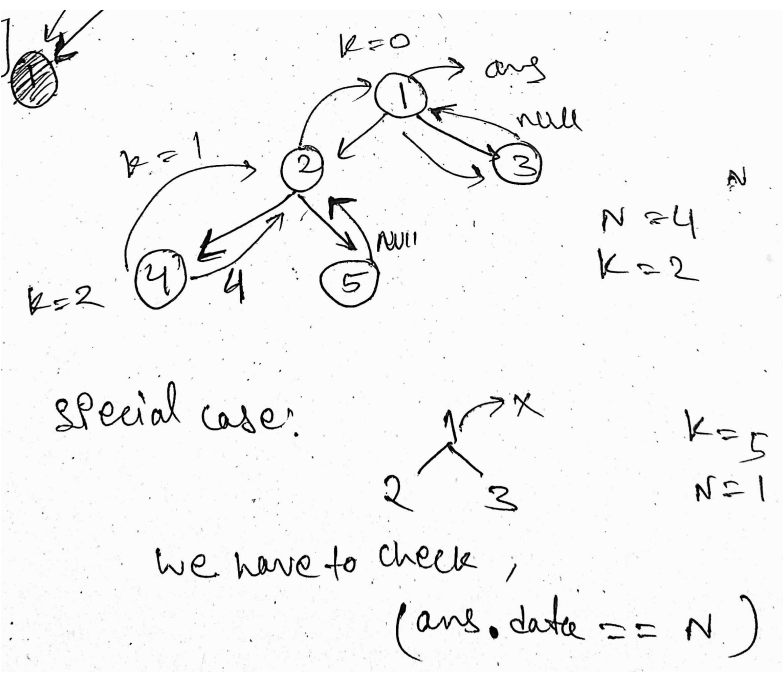 ]
1
K=0
1
ans
null
k=1
2
3
N
N=4
K=2
Null
4
4
5
k=2
special case:
1
X
K=5
2
3
N=1
we have to check,
(ans.data == N)